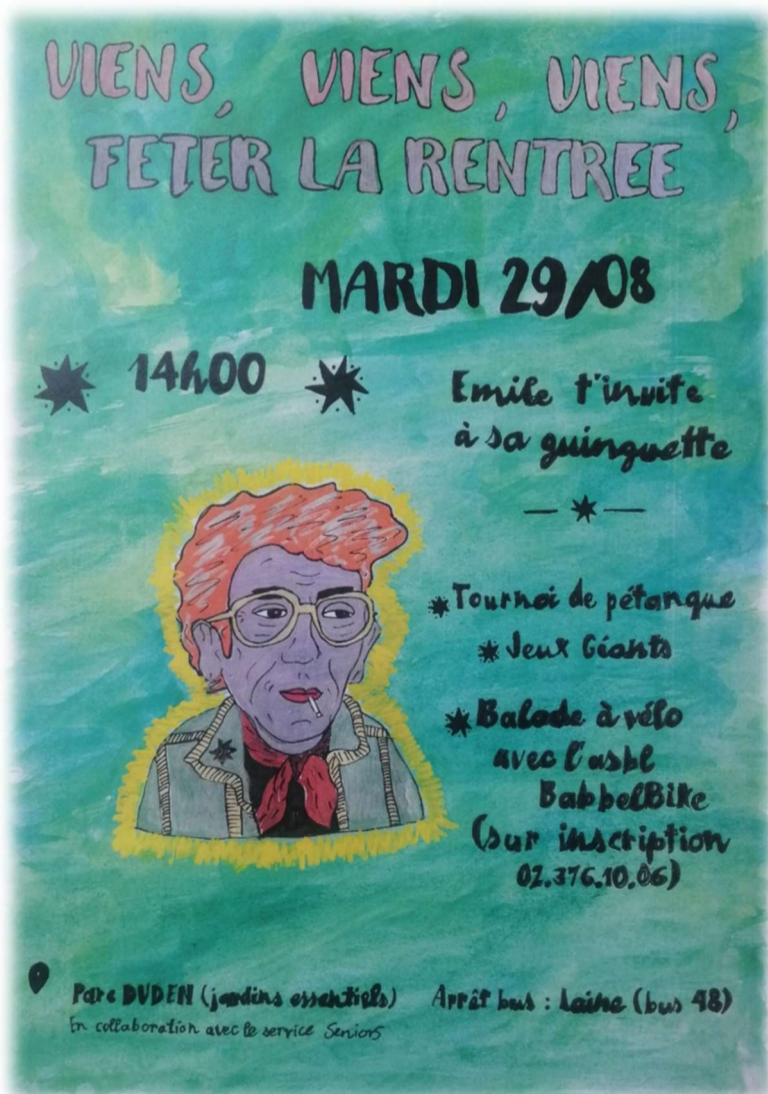 VIENS, VIENS, VIENS,
FETER LA RENTREE
MARDI 29/08
14h00
Emile t'invite
à sa guinguette
Tournoi de pétanque
Jeux Géants
Balade à vélo
avec l'asbl
BabbelBike
(sur inscription
02.376.10.06)
Parc DUDEN (jardins essentiels) Arrêt bus : Laine (bus 48)
En collaboration avec le service Seniors